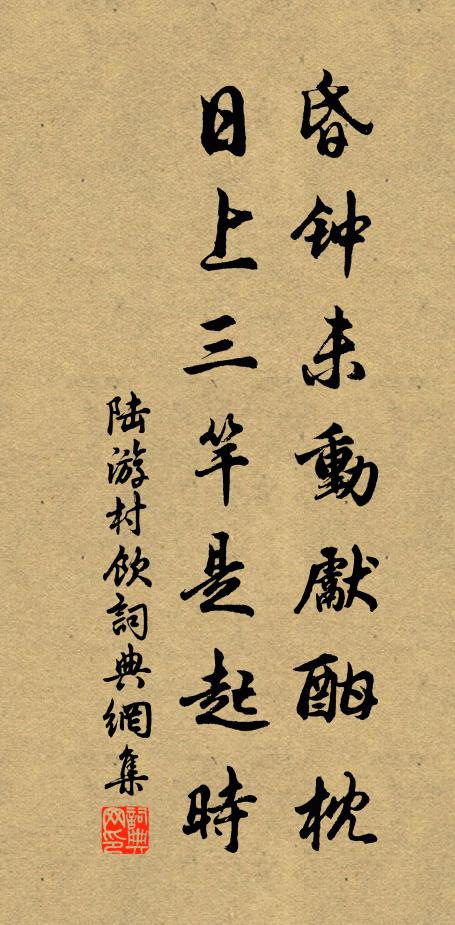 昏钟未動獻酣枕
日上三竿是起時
陆游村飲詞典網集
詞典网印